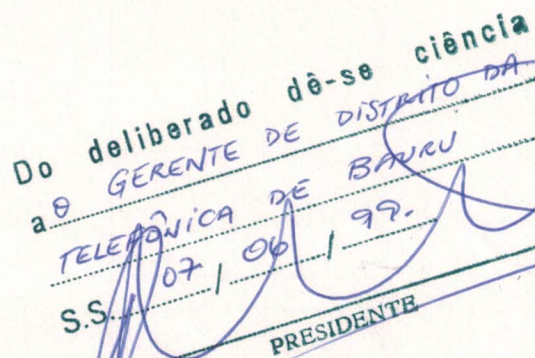 Do deliberado dê-se ciência
ao GERENTE DE DISTRITO DA
TELEFÔNICA DE BAURU
S.S. 07 / 06 / 99.
PRESIDENTE